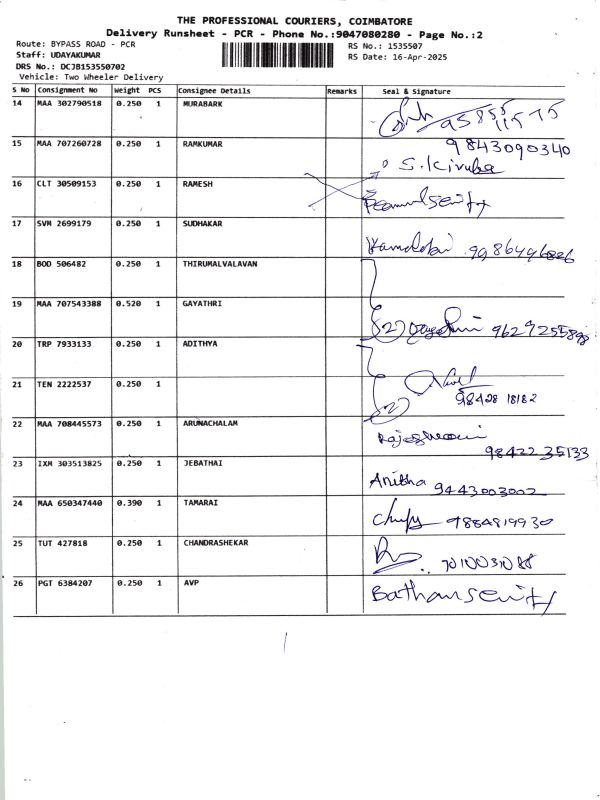 THE PROFESSIONAL COURIERS, COIMBATORE
Delivery Runsheet - PCR - Phone No.:9047080280 - Page No.:2
Route: BYPASS ROAD - PCR
RS No.: 1535507
Staff: UDAYAKUMAR
RS Date: 16-Apr-2025
DRS No.: DCJB153550702
Vehicle: Two Wheeler Delivery
S No Consignment No Weight PCS Consignee Details Remarks Seal & Signature
14 MAA 302790518 0.250 1 MURABARK
95855 11575
15 MAA 707260728 0.250 1 RAMKUMAR 9843090340
S. Kiruba
16 CLT 30509153 0.250 1 RAMESH
17 SVM 2699179 0.250 1 SUDHAKAR
18 BOD 506482 0.250 1 THIRUMALVALAVAN
19 MAA 707543388 0.520 1 GAYATHRI
(2)
20 TRP 7933133 0.250 1 ADITHYA
21 TEN 2222537 0.250 1
98428 18182
(2)
22 MAA 708445573 0.250 1 ARUNACHALAM
98422 35133
23 IXM 303513825 0.250 1 JEBATHAI
Anitha 9443003002
24 MAA 650347440 0.390 1 TAMARAI
9884819930
25 TUT 427818 0.250 1 CHANDRASHEKAR
26 PGT 6384207 0.250 1 AVP